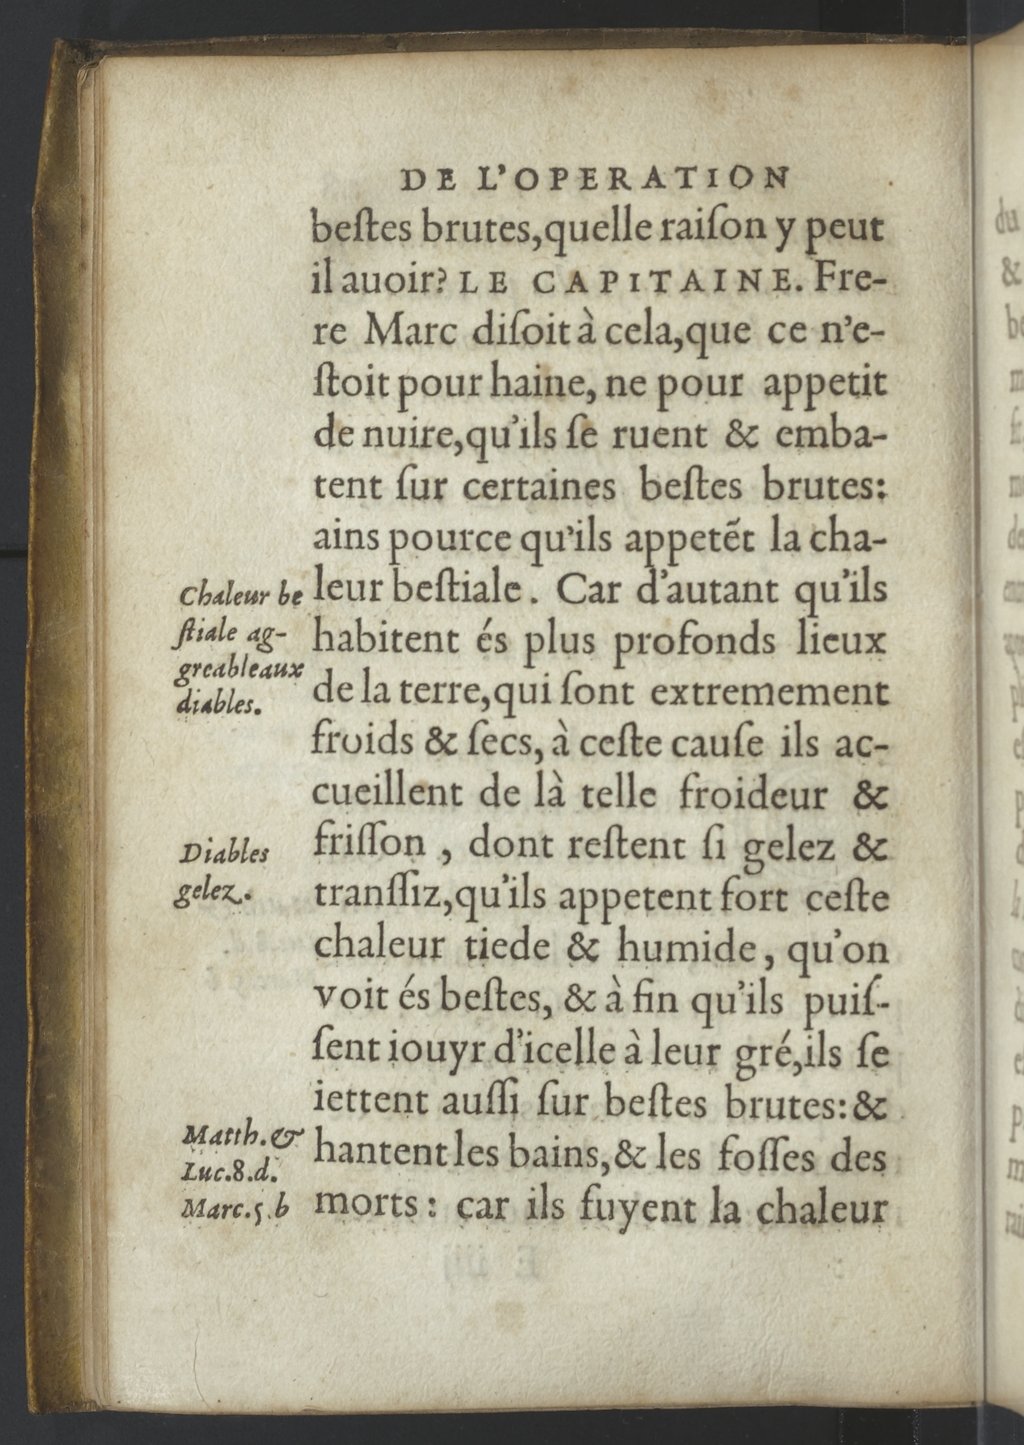 DE L'OPERATION
beſtes brutes,quelle raiſon y peut
il auoir? LE CAPITAINE. Fre-
re Marc diſoit à cela,que ce n'e-
ſtoit pour haine, ne pour appetit
de nuire,qu'ils ſe ruent & emba-
tent ſur certaines beſtes brutes:
ains pource qu'ils appetẽt la cha-
leur beſtiale. Car d'autant qu'ils
habitent és plus profonds lieux
de la terre,qui ſont extremement
froids & ſecs, à ceſte cauſe ils ac-
cueillent de là telle froideur &
friſſon , dont reſtent ſi gelez &
tranſſiz,qu'ils appetent fort ceſte
chaleur tiede & humide, qu'on
voit és beſtes, & à fin qu'ils puiſ-
ſent iouyr d'icelle à leur gré,ils ſe
iettent auſſi ſur beſtes brutes:&
hantent les bains,& les foſſes des
morts: car ils fuyent la chaleur
Chaleur be
ſtiale ag-
greableaux
diables.
Diables
gelez.
Matth.&
Luc.8.d.
Marc.5.b